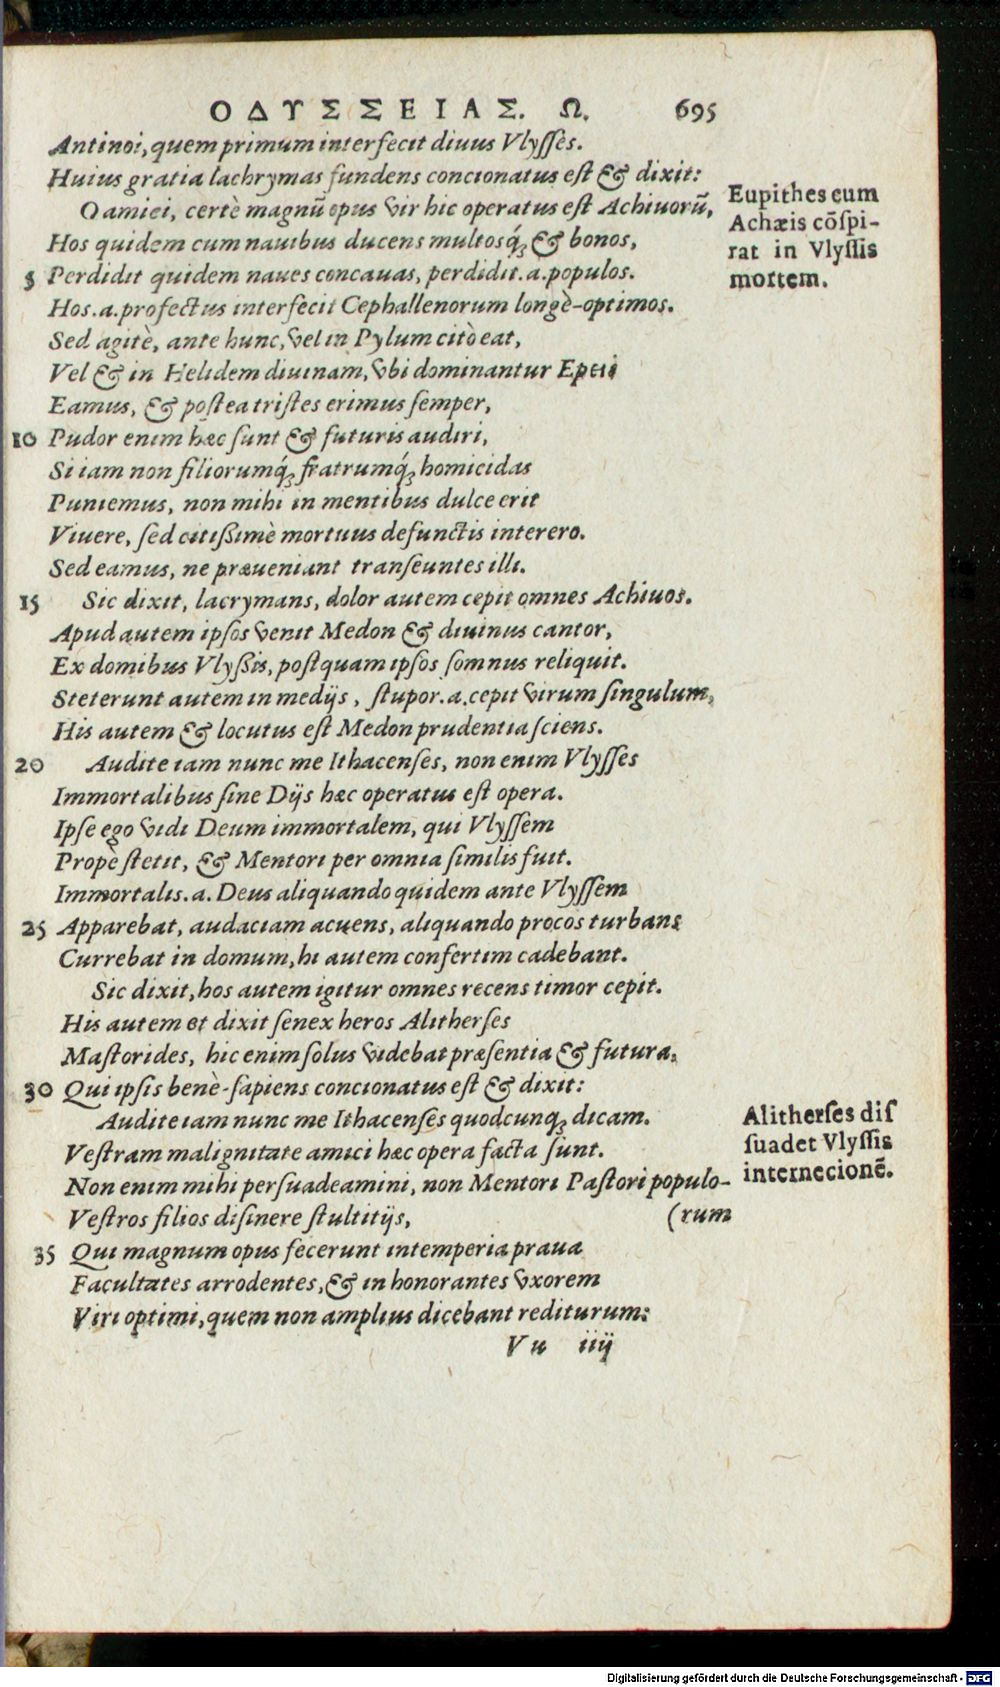 ΟΔΥΣΣΕΙΑΣ. Ω. 695
Antinoi, quem primum interfecit diuus Vlysses.
Huius gratia lachrymas fundens concionatus est & dixit:
O amici, certè magnũ opus vir hic operatus est Achiuorũ,
Eupithes cum
Achæis cõspi-
rat in Vlyssis
mortem.
Hos quidem cum nauibus ducens multosq́; & bonos,
5 Perdidit quidem naues concauas, perdidit .a. populos.
Hos .a. profectus interfecit Cephallenorum longè-optimos.
Sed agitè, ante hunc, vel in Pylum citò eat,
Vel & in Helidem diuinam, vbi dominantur Epeii
Eamus, & postea tristes erimus semper,
10 Pudor enim hæc sunt & futuris audiri,
Si iam non filiorumq́; fratrumq́; homicidas
Puniemus, non mihi in mentibus dulce erit
Viuere, sed citißimè mortuus defunctis interero.
Sed eamus, ne præueniant transeuntes illi.
15 Sic dixit, lacrymans, dolor autem cepit omnes Achiuos.
Apud autem ipsos venit Medon & diuinus cantor,
Ex domibus Vlyßis, postquam ipsos somnus reliquit.
Steterunt autem in medijs, stupor .a. cepit virum singulum,
His autem & locutus est Medon prudentia sciens.
20 Audite iam nunc me Ithacenses, non enim Vlysses
Immortalibus sine Dijs hæc operatus est opera.
Ipse ego vidi Deum immortalem, qui Vlyssem
Propè stetit, & Mentori per omnia similis fuit.
Immortalis .a. Deus aliquando quidem ante Vlyssem
25 Apparebat, audaciam acuens, aliquando procos turbans
Currebat in domum, hi autem confertim cadebant.
Sic dixit, hos autem igitur omnes recens timor cepit.
His autem et dixit senex heros Alitherses
Mastorides, hic enim solus videbat præsentia & futura,
30 Qui ipsis benè-sapiens concionatus est & dixit:
Audite iam nunc me Ithacenses quodcunq; dicam.
Alitherses dis
suadet Vlyssis
internecionẽ.
Vestram malignitate amici hæc opera facta sunt.
Non enim mihi persuadeamini, non Mentori Pastori populo-
Vestros filios disinere stultitijs, (rum
35 Qui magnum opus fecerunt intemperia praua
Facultates arrodentes, & in honorantes vxorem
Viri optimi, quem non amplius dicebant rediturum:
Vu iiij
Digitalisierung gefördert durch die Deutsche Forschungsgemeinschaft - DFG